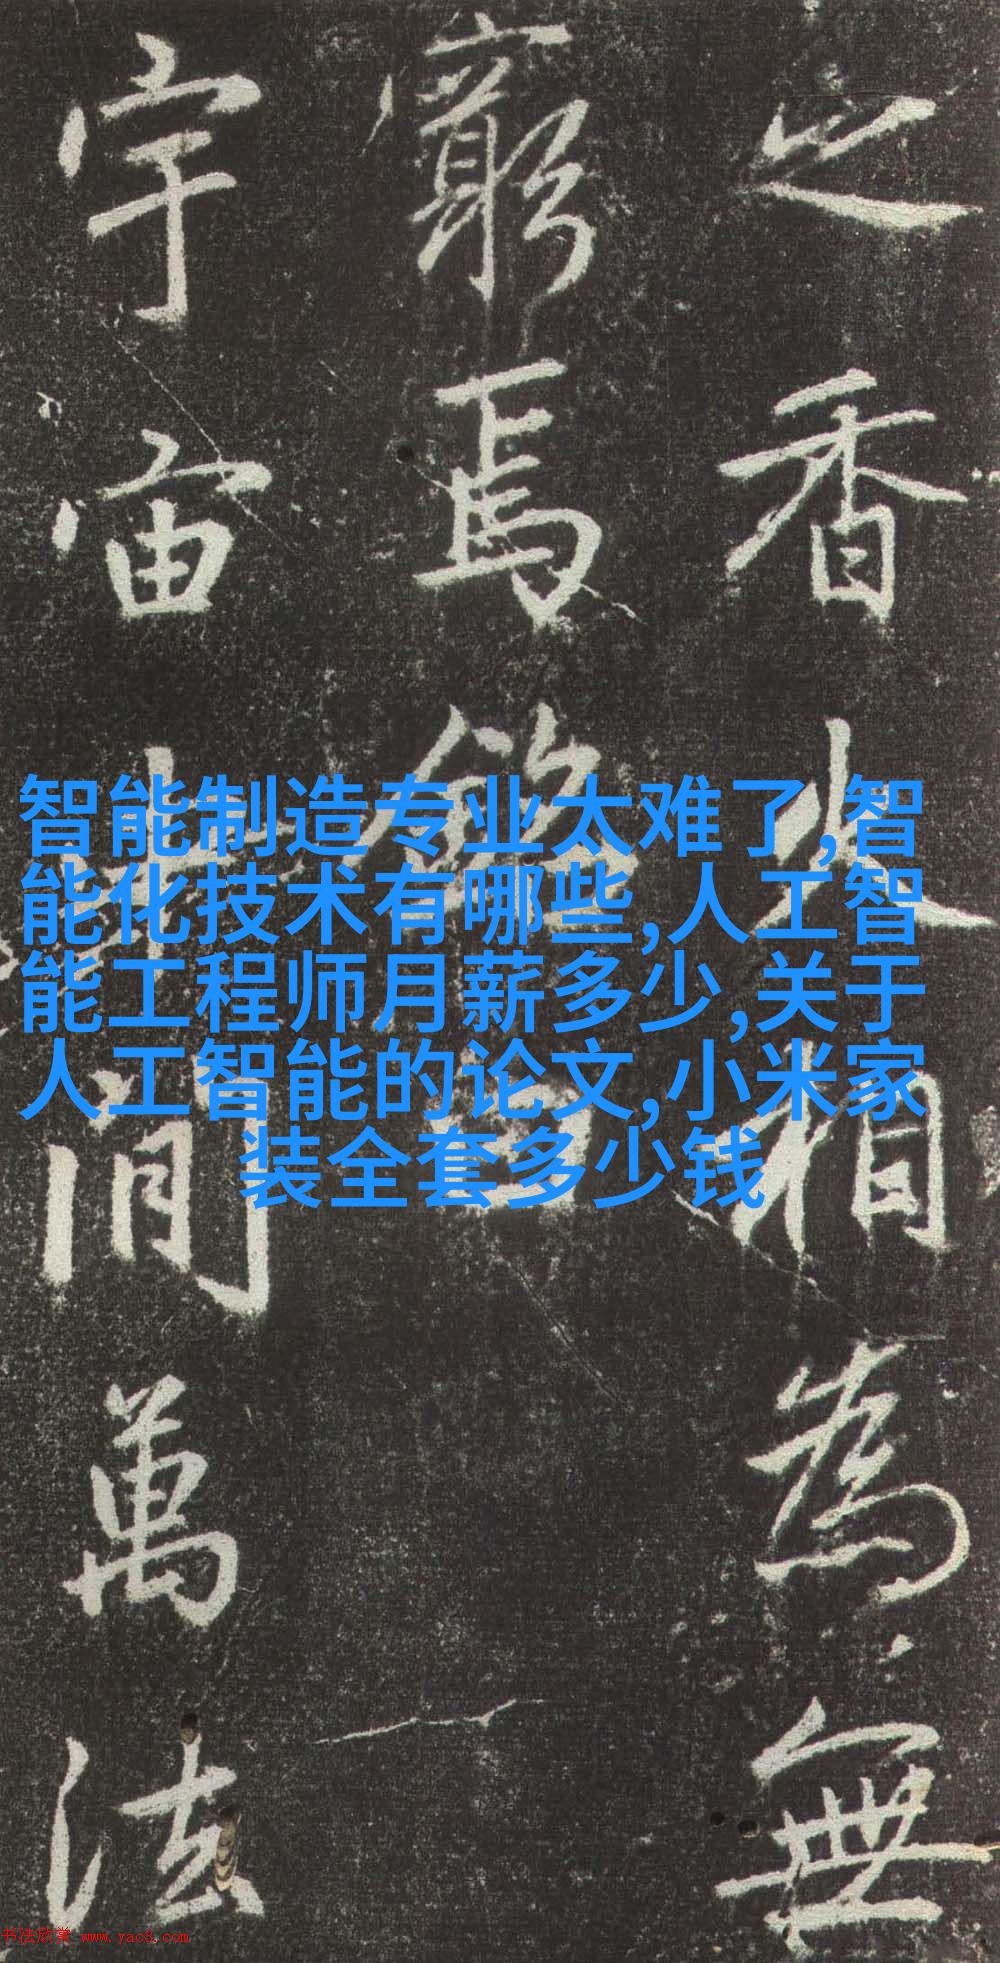 之香火相為無
窮焉銘曰
宇宙間萬法
智能制造专业太难了,智
能化技术有哪些,人工智
能工程师月薪多少,关于
人工智能的论文,小米家
装全套多少钱
书法欣赏 www.yac8.com